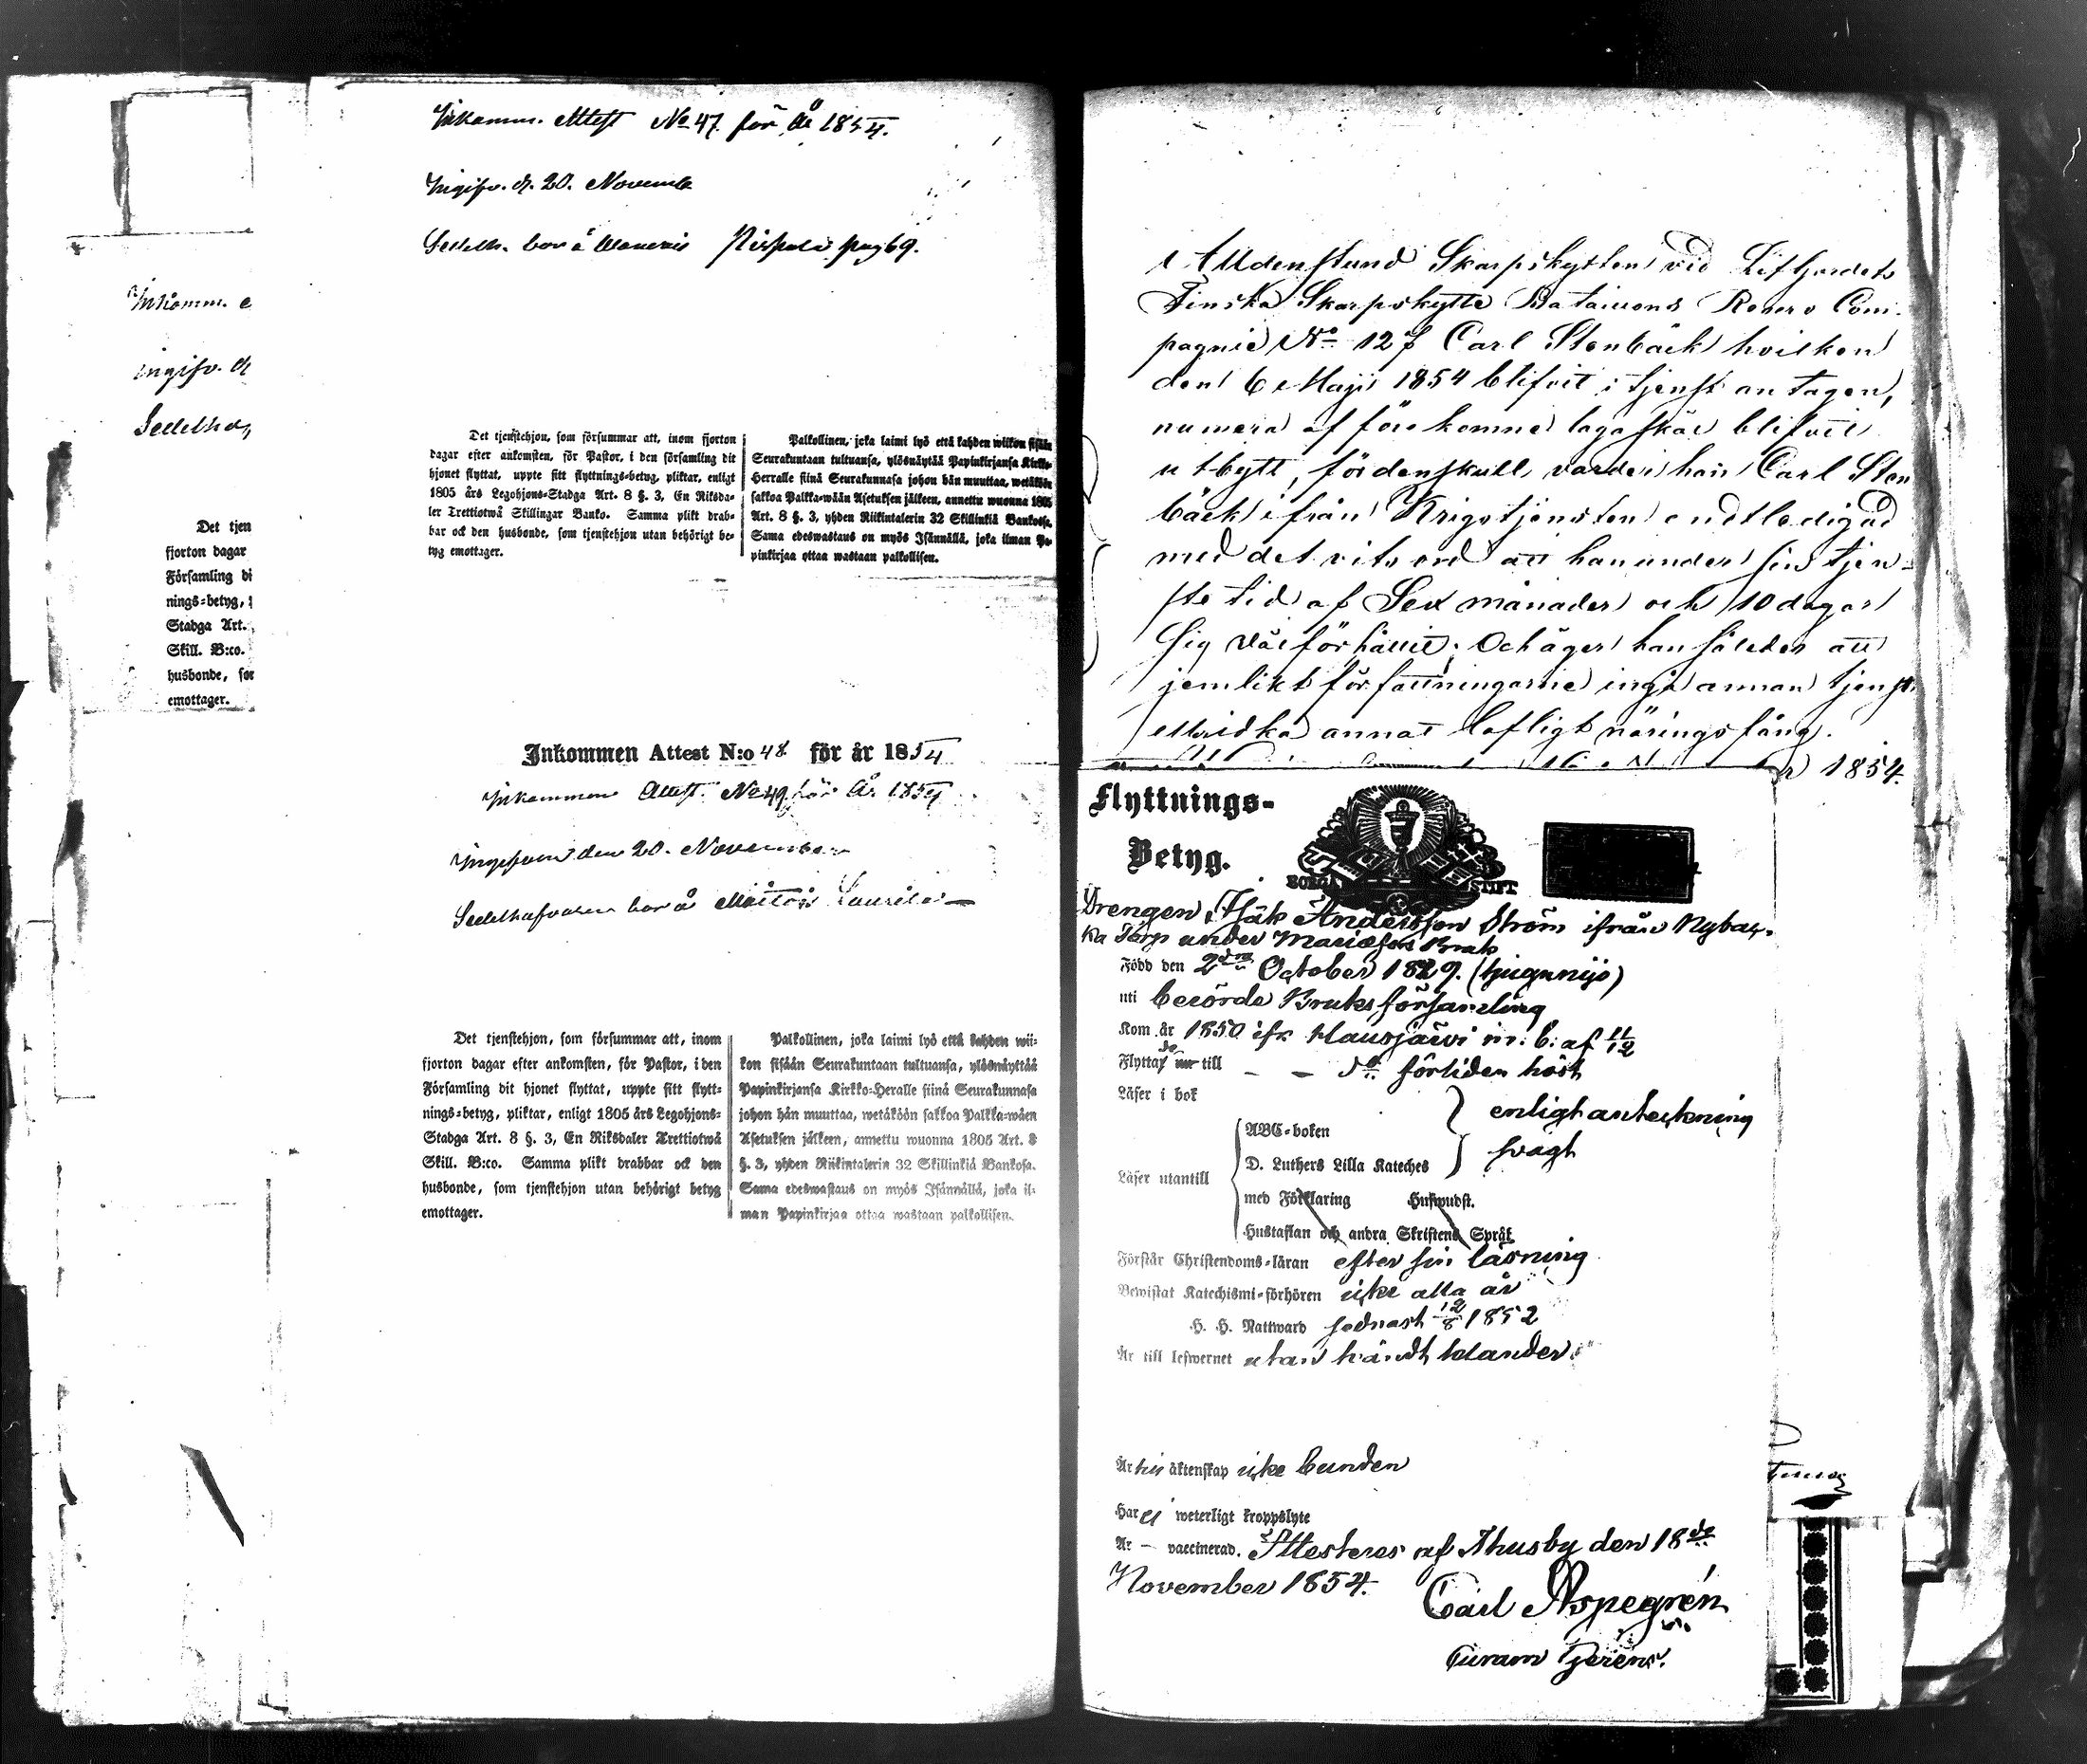 Inkomm. Attest No 47. för År 1854.
Ingifv. d. 20. Novemb
Sedelh. bor å pag 69.
Inkomm.
ingifv. d
Sedelhaf
Det tjenstehjon, som försummar att, inom fjorton
dagar efter ankomsten, för Pastor, i den församling dit
hjonet flyttat, uppte sitt flyttnings-betyg, pliktar, enligt
1805 års Legohjons-Stadga Art. 8 §. 3, En Riksda-
ler Trettiotwå Skillingar Banko. Samma plikt drab-
bar ock den husbonde, som tjenstehjon utan behörigt be-
tyg emottager.
Palkollinen, joka laimi lyö että kahden wiikon sisään
Seurakuntaan tultuansa, ylösnäytää Papinkirjansa Kirkko-
Herralle siinä Seurakunnasa johon hän muuttaa, wetäköön
sakkoa Palkka-wään Asetuksen jälkeen, annettu wuonna 1805
Art. 8 §. 3, yhden Riikintalerin 32 Skillinkiä Bankosa.
Sama edeswastaus on myös Isännällä, joka ilman Pa-
pinkirjaa ottaa wastaan palkollisen.
Det tjen
fjorton dagar
Församling di
nings-betyg,
Stadga Art.
Skill. B:co.
husbonde, som
emottager.
Inkommen Attest N:o 48 för år 1854
Inkommen Attest. No 49 för År 1854
Ingifven den 20. November
Sedelhafvaren bor å Laurila
Det tjenstehjon, som försummar att, inom
fjorton dagar efter ankomsten, för Pastor, i den
Församling dit hjonet flyttat, uppte sitt flytt-
nings-betyg, pliktar, enligt 1805 års Legohjons-
Stadga Art. 8 §. 3, En Riksdaler Trettiotwå
Skill. B:co. Samma plikt drabbar ock den
husbonde, som tjenstehjon utan behörigt betyg
emottager.
Palkollinen, joka laimi lyö että kahden wii-
kon sisään Seurakuntaan tultuansa, ylösnäyttää
Papinkirjansa Kirkko-Heralle siinä Seurakunnasa
johon hän muuttaa, wetäköön sakkoa Palkka-wäen
Asetuksen jälkeen, annettu wuonna 1805 Art. 8
§. 3, yhden Riikintalerin 32 Skillinkiä Bankosa.
Sama edeswastaus on myös Isännällä, joka il-
man Papinkirjaa ottaa wastaan palkollisen.
Alldenstund Skarpskytten vid Lifgardets
Finska Skarpskytte Bataillons Reserv Com-
pagnie No 12 Carl Stenbäck hvilken
den 6 Maji 1854 blifvit i tjenst antagen,
numera af förekomne laga skäl blifvit
utbytt, fördenskull varder han Carl Sten
bäck ifrån Krigstjensten endtledigad
med det vitsord att han under sin tjen-
ste tid af Sex månader och 10 dagar
sig väl förhållit; Och äger han således att
jemlikt författningarne ingå annan tjenst
eller idka annat lofligt näringsfång.
1854.
Flyttnings-
Betyg.
BORGÅ STIFT
Drengen Isak Andersson Ström ifrån Nybac-
ka Torp under Mariefors Bruk
Född den 2dra October 1829. (tjugunijo)
uti berörde Bruksförsamling
Kom år 1850 ifr. Hausjärvi m: b: af 11/12
Flyttade till do förliden höst
Läser i bok
enligt anteckning
svagt
Läser utantill
ABC-boken
D. Luthers Lilla Kateches
med Förklaring Huswudst.
Hustaflan och andra Skriftens Språk
Förstår Christendoms-läran efter sin läsning
Bewistat Katechismi-förhören icke alla år
H. H. Nattward sednast 12/8 1852
Är till lefwernet utan kändt klander.
Är till äktenskap icke bunden
Har ej weterligt kroppslyte
Är — vaccinerad. Attesteras af Thusby den 18de
November 1854.
Carl Aspegrén
Curam Gerens.